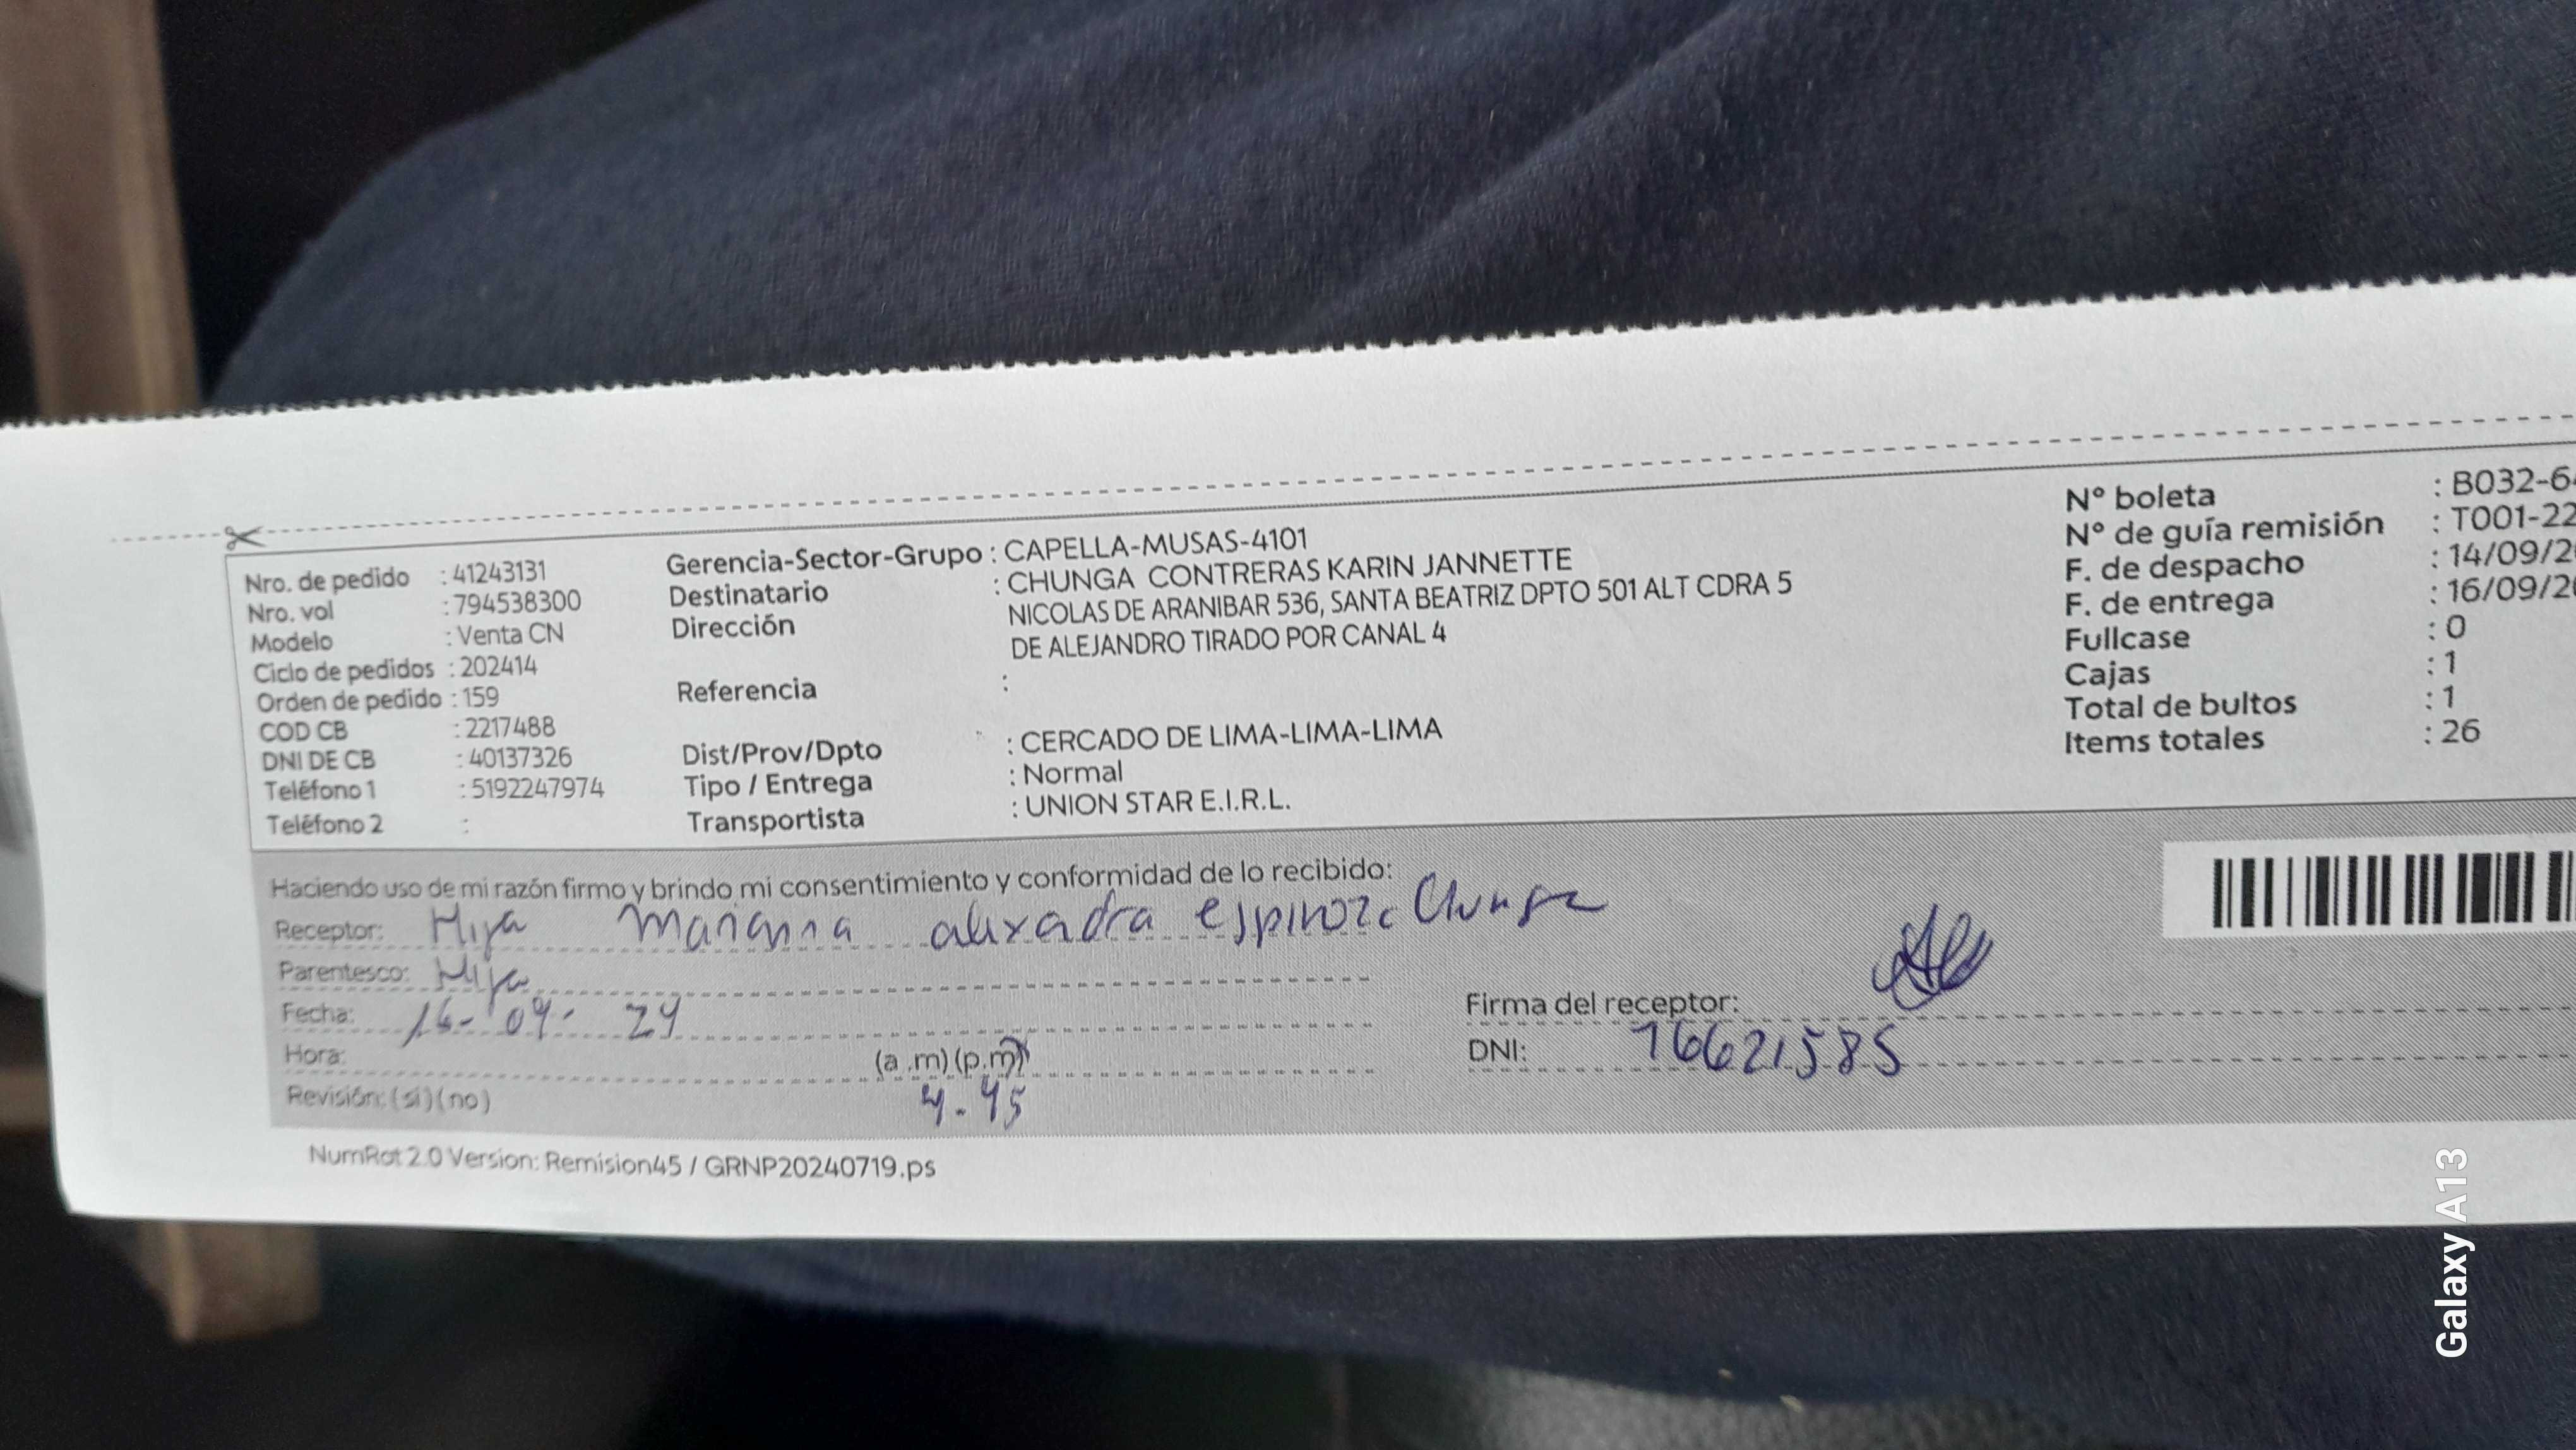 Nro. de pedido : 41243131
Nro. vol : 794538300
Modelo : Venta CN
Ciclo de pedidos : 202414
Orden de pedido : 159
COD CB : 2217488
DNI DE CB : 40137326
Teléfono 1 : 5192247974
Teléfono 2 :
Gerencia-Sector-Grupo : CAPELLA-MUSAS-4101
Destinatario : CHUNGA CONTRERAS KARIN JANNETTE
Dirección NICOLAS DE ARANIBAR 536, SANTA BEATRIZ DPTO 501 ALT CDRA 5
DE ALEJANDRO TIRADO POR CANAL 4
Referencia :
Dist/Prov/Dpto : CERCADO DE LIMA-LIMA-LIMA
Tipo / Entrega : Normal
Transportista : UNION STAR E.I.R.L.
N° boleta : B032-6
N° de guía remisión : T001-22
F. de despacho : 14/09/2
F. de entrega : 16/09/2
Fullcase : 0
Cajas : 1
Total de bultos : 1
Items totales : 26
Haciendo uso de mi razón firmo y brindo mi consentimiento y conformidad de lo recibido:
Receptor: Hija Marianna alixadra espinoza Chunga
Parentesco: Hija
Fecha: 16-09-24
Hora: (a.m)(p.m)
4.45
Revisión: (si)(no)
Firma del receptor:
DNI: 76621585
NumRot 2.0 Version: Remision45 / GRNP20240719.ps
Galaxy A13